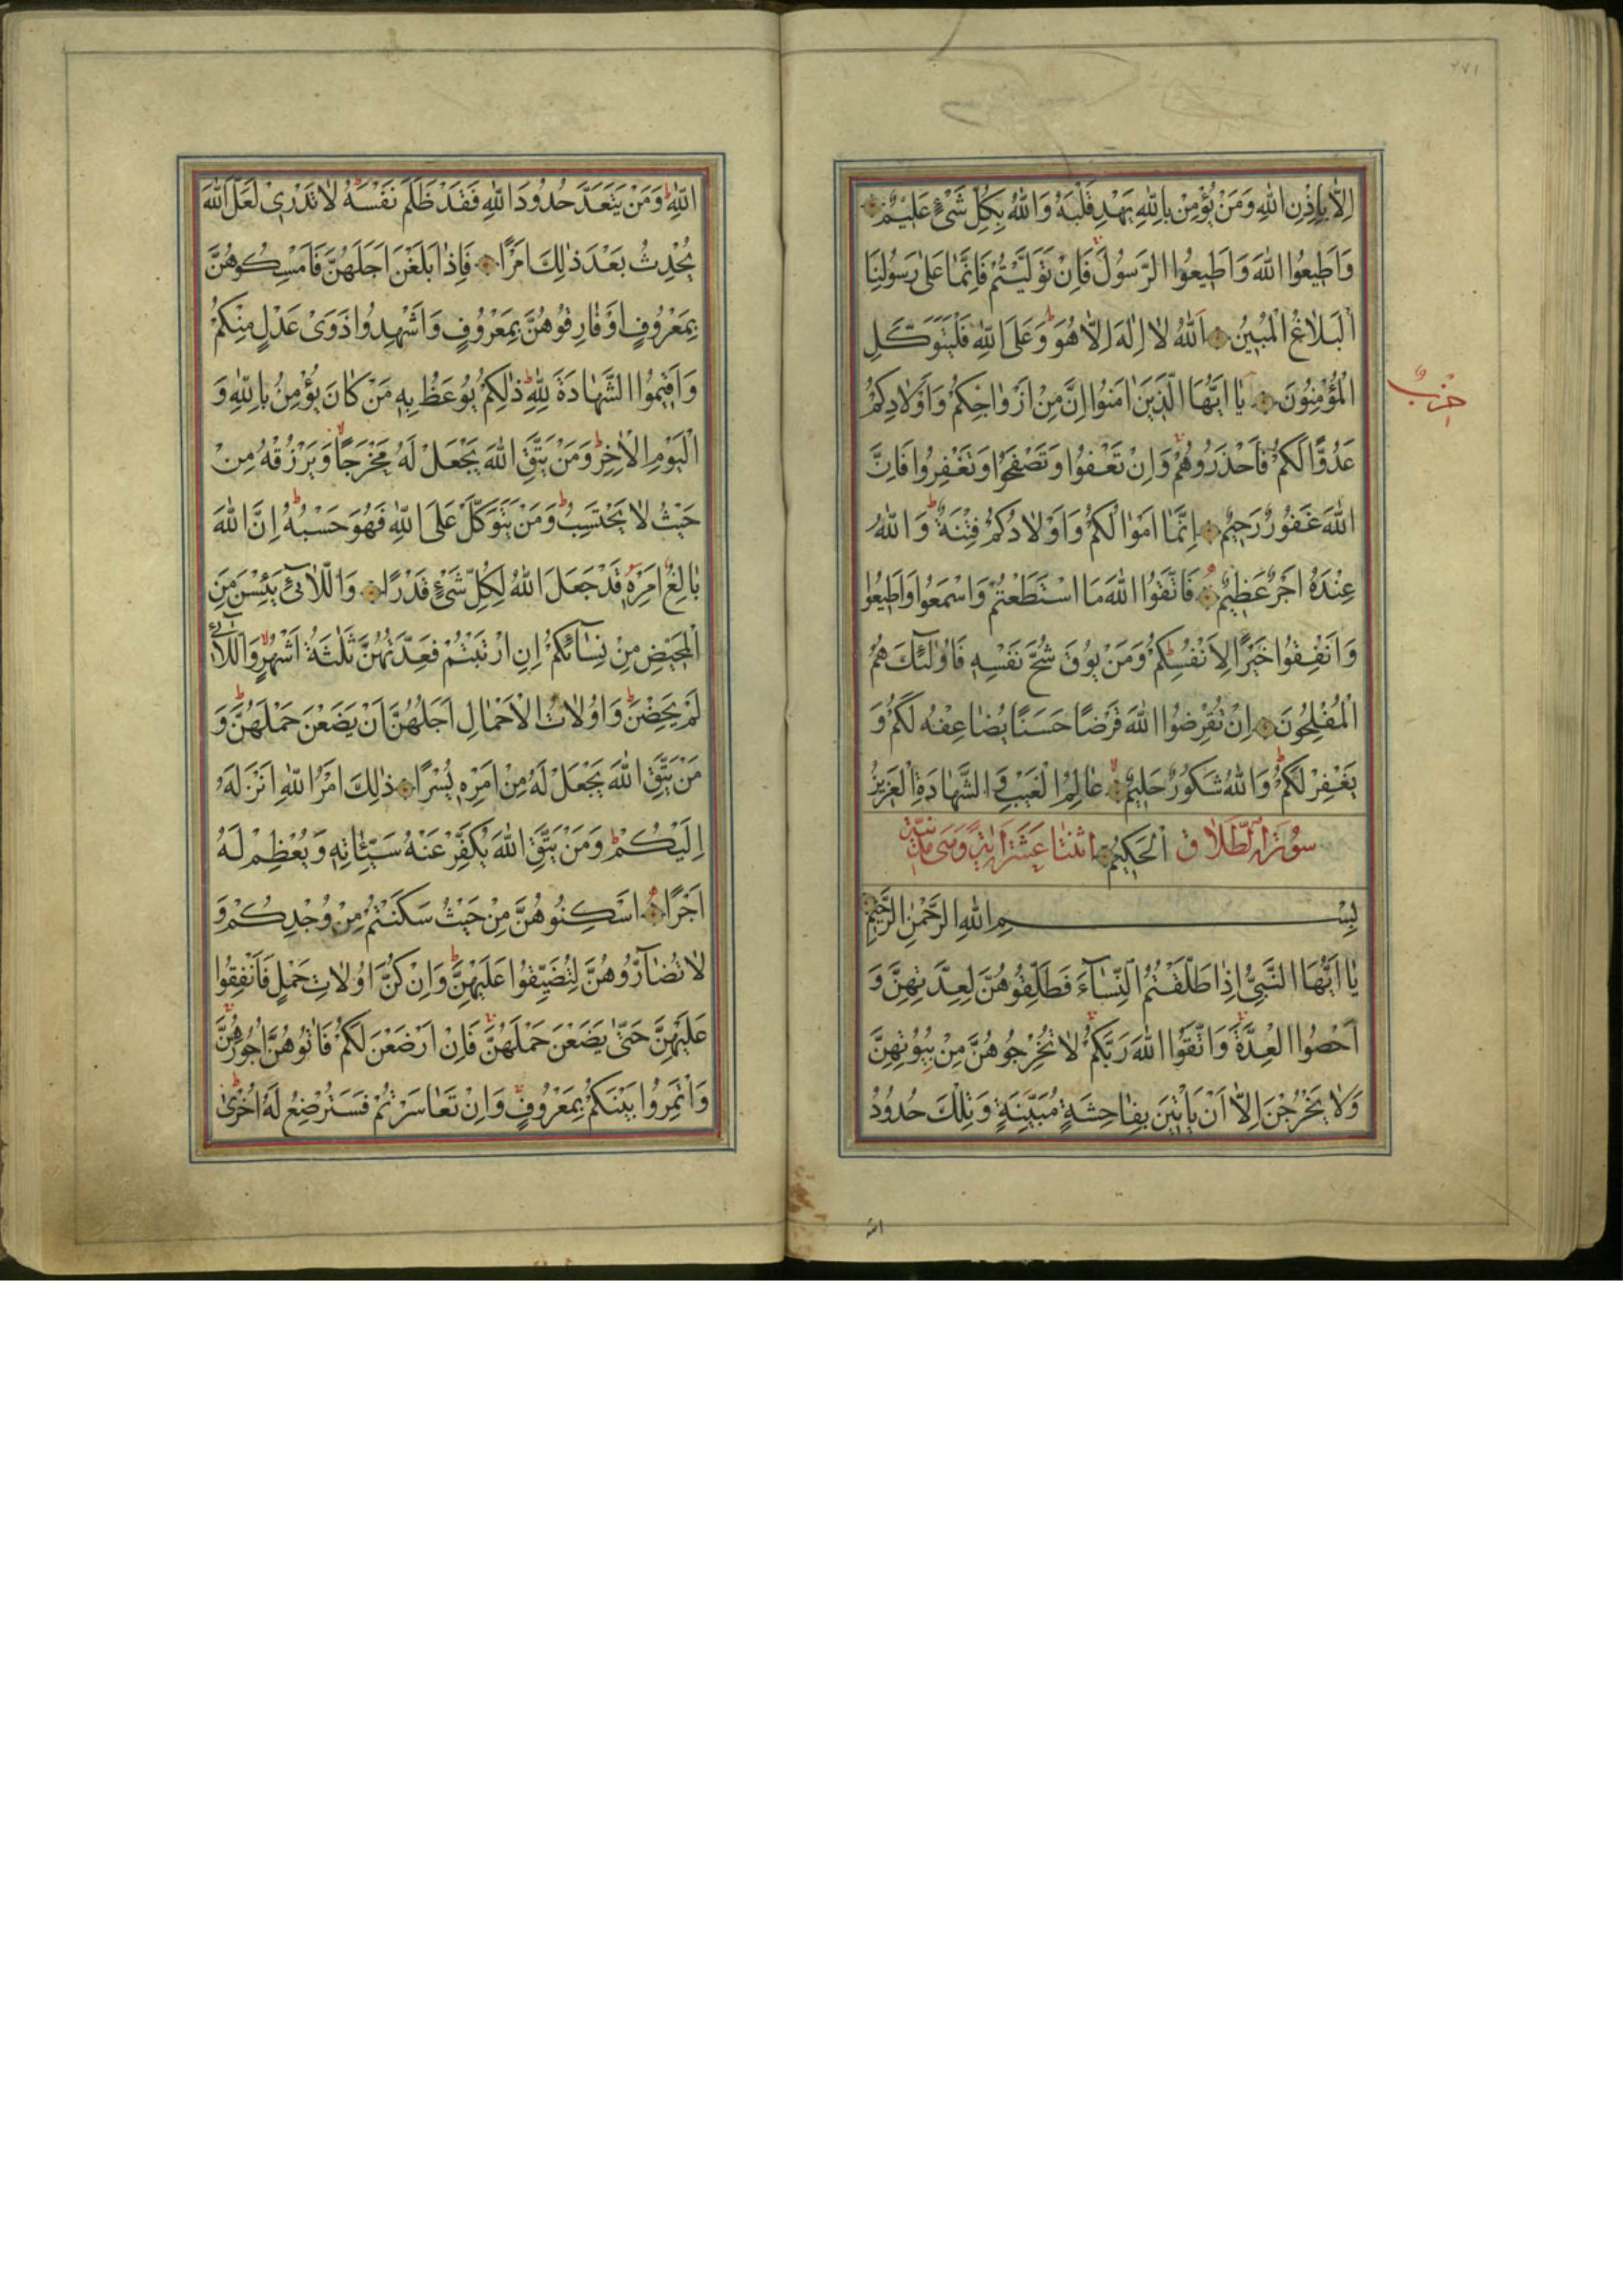 ٢٧١
اِلّا بِاِذْنِ اللّٰهِ وَمَنْ يُؤْمِنْ بِاللّٰهِ يَهْدِ قَلْبَهُ وَاللّٰهُ بِكُلِّ شَیْءٍ عَلِيمٌ
وَاَطِيعُوا اللّٰهَ وَاَطِيعُوا الرَّسُولَ فَاِنْ تَوَلَّيْتُمْ فَاِنَّمٰا عَلىٰ رَسُولِنَا
اَلْبَلاٰغُ الْمُبِينُ اَللّٰهُ لاٰ اِلٰهَ اِلاّٰ هُوَ وَعَلَى اللّٰهِ فَلْيَتَوَكَّلِ
الْمُؤْمِنُونَ يٰا اَيُّهَا الَّذِينَ اٰمَنُوا اِنَّ مِنْ اَزْوٰاجِكُمْ وَاَوْلاٰدِكُمْ
حزب
عَدُوًّا لَكُمْ فَاحْذَرُوهُمْ وَاِنْ تَعْفُوا وَتَصْفَحُوا وَتَغْفِرُوا فَاِنَّ
اللّٰهَ غَفُورٌ رَحِيمٌ اِنَّمٰا اَمْوٰالُكُمْ وَاَوْلاٰدُكُمْ فِتْنَةٌ وَاللّٰهُ
عِنْدَهُ اَجْرٌ عَظِيمٌ فَاتَّقُوا اللّٰهَ مَا اسْتَطَعْتُمْ وَاسْمَعُوا وَاَطِيعُوا
وَاَنْفِقُوا خَيْرًا لِاَنْفُسِكُمْ وَمَنْ يُوقَ شُحَّ نَفْسِهِ فَاُولٰئِكَ هُمُ
الْمُفْلِحُونَ اِنْ تُقْرِضُوا اللّٰهَ قَرْضًا حَسَنًا يُضٰاعِفْهُ لَكُمْ وَ
يَغْفِرْ لَكُمْ وَاللّٰهُ شَكُورٌ حَلِيمٌ عٰالِمُ الْغَيْبِ وَالشَّهٰادَةِ الْعَزِيزُ
سُورَةُ الطَّلاٰق اَلْحَكِيمُ اثنتا عشرة اية وهى مدنية
بِسْمِ اللّٰهِ الرَّحْمٰنِ الرَّحِيمِ
يٰا اَيُّهَا النَّبِيُّ اِذٰا طَلَّقْتُمُ النِّسٰآءَ فَطَلِّقُوهُنَّ لِعِدَّتِهِنَّ وَ
اَحْصُوا الْعِدَّةَ وَاتَّقُوا اللّٰهَ رَبَّكُمْ لاٰ تُخْرِجُوهُنَّ مِنْ بُيُوتِهِنَّ
وَلاٰ يَخْرُجْنَ اِلاّٰ اَنْ يَأْتِينَ بِفٰاحِشَةٍ مُبَيِّنَةٍ وَتِلْكَ حُدُودُ
الله
اللّٰهِ وَمَنْ يَتَعَدَّ حُدُودَ اللّٰهِ فَقَدْ ظَلَمَ نَفْسَهُ لاٰ تَدْرِی لَعَلَّ اللّٰهَ
يُحْدِثُ بَعْدَ ذٰلِكَ اَمْرًا فَاِذٰا بَلَغْنَ اَجَلَهُنَّ فَاَمْسِكُوهُنَّ
بِمَعْرُوفٍ اَوْ فٰارِقُوهُنَّ بِمَعْرُوفٍ وَاَشْهِدُوا ذَوَیْ عَدْلٍ مِنْكُمْ
وَاَقِيمُوا الشَّهٰادَةَ لِلّٰهِ ذٰلِكُمْ يُوعَظُ بِهِ مَنْ كٰانَ يُؤْمِنُ بِاللّٰهِ وَ
الْيَوْمِ الْاٰخِرِ وَمَنْ يَتَّقِ اللّٰهَ يَجْعَلْ لَهُ مَخْرَجًا وَيَرْزُقْهُ مِنْ
حَيْثُ لاٰ يَحْتَسِبُ وَمَنْ يَتَوَكَّلْ عَلَى اللّٰهِ فَهُوَ حَسْبُهُ اِنَّ اللّٰهَ
بٰالِغُ اَمْرِهِ قَدْ جَعَلَ اللّٰهُ لِكُلِّ شَیْءٍ قَدْرًا وَاللاّٰئِی يَئِسْنَ مِنَ
الْمَحِيضِ مِنْ نِسٰآئِكُمْ اِنِ ارْتَبْتُمْ فَعِدَّتُهُنَّ ثَلٰثَةُ اَشْهُرٍ وَاللاّٰئِی
لَمْ يَحِضْنَ وَاُولاٰتُ الْاَحْمٰالِ اَجَلُهُنَّ اَنْ يَضَعْنَ حَمْلَهُنَّ وَ
مَنْ يَتَّقِ اللّٰهَ يَجْعَلْ لَهُ مِنْ اَمْرِهِ يُسْرًا ذٰلِكَ اَمْرُ اللّٰهِ اَنْزَلَهُ
اِلَيْكُمْ وَمَنْ يَتَّقِ اللّٰهَ يُكَفِّرْ عَنْهُ سَيِّئٰاتِهِ وَيُعْظِمْ لَهُ
اَجْرًا اَسْكِنُوهُنَّ مِنْ حَيْثُ سَكَنْتُمْ مِنْ وُجْدِكُمْ وَ
لاٰ تُضٰآرُّوهُنَّ لِتُضَيِّقُوا عَلَيْهِنَّ وَاِنْ كُنَّ اُولاٰتِ حَمْلٍ فَاَنْفِقُوا
عَلَيْهِنَّ حَتّىٰ يَضَعْنَ حَمْلَهُنَّ فَاِنْ اَرْضَعْنَ لَكُمْ فَاٰتُوهُنَّ اُجُورَهُنَّ
وَأْتَمِرُوا بَيْنَكُمْ بِمَعْرُوفٍ وَاِنْ تَعٰاسَرْتُمْ فَسَتُرْضِعُ لَهُ اُخْرىٰ